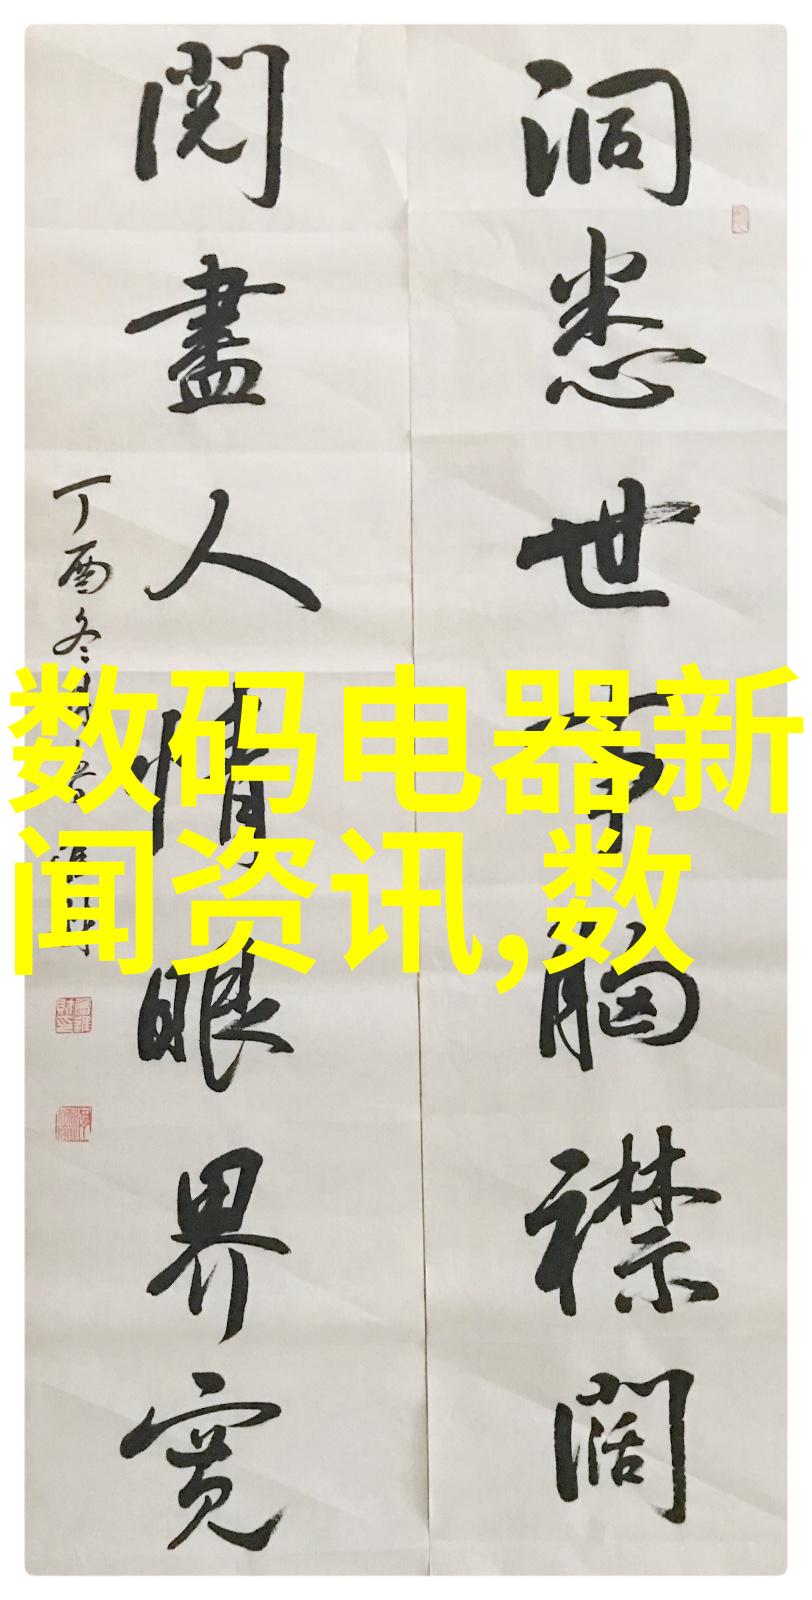 洞悉世事胸襟阔
阅尽人情眼界宽
丁酉冬月
数码电器新
闻资讯,数